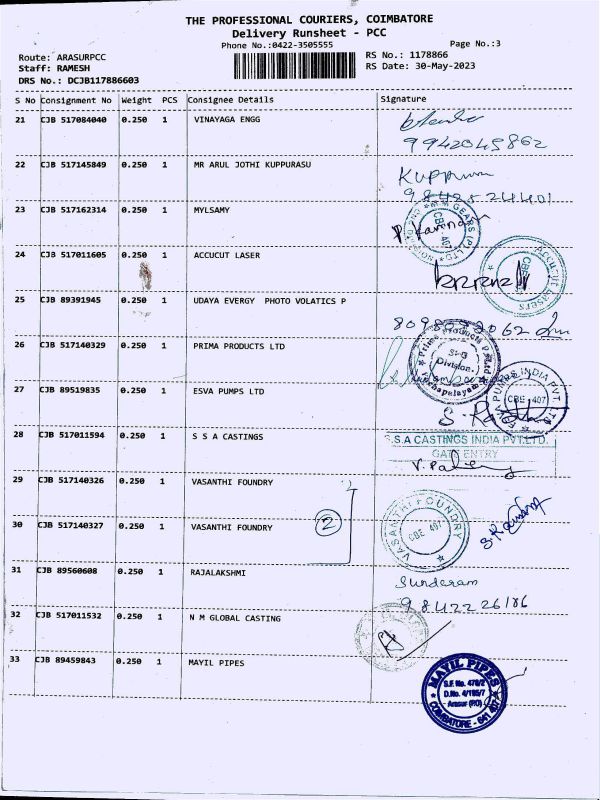 THE PROFESSIONAL COURIERS, COIMBATORE
Delivery Runsheet - PCC
Phone No.:0422-3505555 Page No.:3
Route: ARASURPCC RS No.: 1178866
Staff: RAMESH RS Date: 30-May-2023
DRS No.: DCJB117886603
S No Consignment No Weight PCS Consignee Details Signature
21 CJB 517084040 0.250 1 VINAYAGA ENGG
9942045862
22 CJB 517145849 0.250 1 MR ARUL JOTHI KUPPURASU
23 CJB 517162314 0.250 1 MYLSAMY
MM GEARS (P) LTD
CBE 407
24 CJB 517011605 0.250 1 ACCUCUT LASER
Accucut Lasers
CBE
25 CJB 89391945 0.250 1 UDAYA EVERGY PHOTO VOLATICS P
26 CJB 517140329 0.250 1 PRIMA PRODUCTS LTD
Prima Products P Ltd
Division.
27 CJB 89519835 0.250 1 ESVA PUMPS LTD
PUMPS INDIA PVT. LTD.
CBE 407
28 CJB 517011594 0.250 1 S S A CASTINGS
S.S.A CASTINGS INDIA PVT.LTD.
GATE ENTRY
29 CJB 517140326 0.250 1 VASANTHI FOUNDRY
30 CJB 517140327 0.250 1 VASANTHI FOUNDRY
2
VASANTHI FOUNDRY
CBE 407
31 CJB 89560608 0.250 1 RAJALAKSHMI
Sundaram
9842226186
32 CJB 517011532 0.250 1 N M GLOBAL CASTING
33 CJB 89459843 0.250 1 MAYIL PIPES
MAYIL PIPES
S.F. No. 478/2
D.No. 4/195/7
Arasur (PO)
COIMBATORE - 641 407